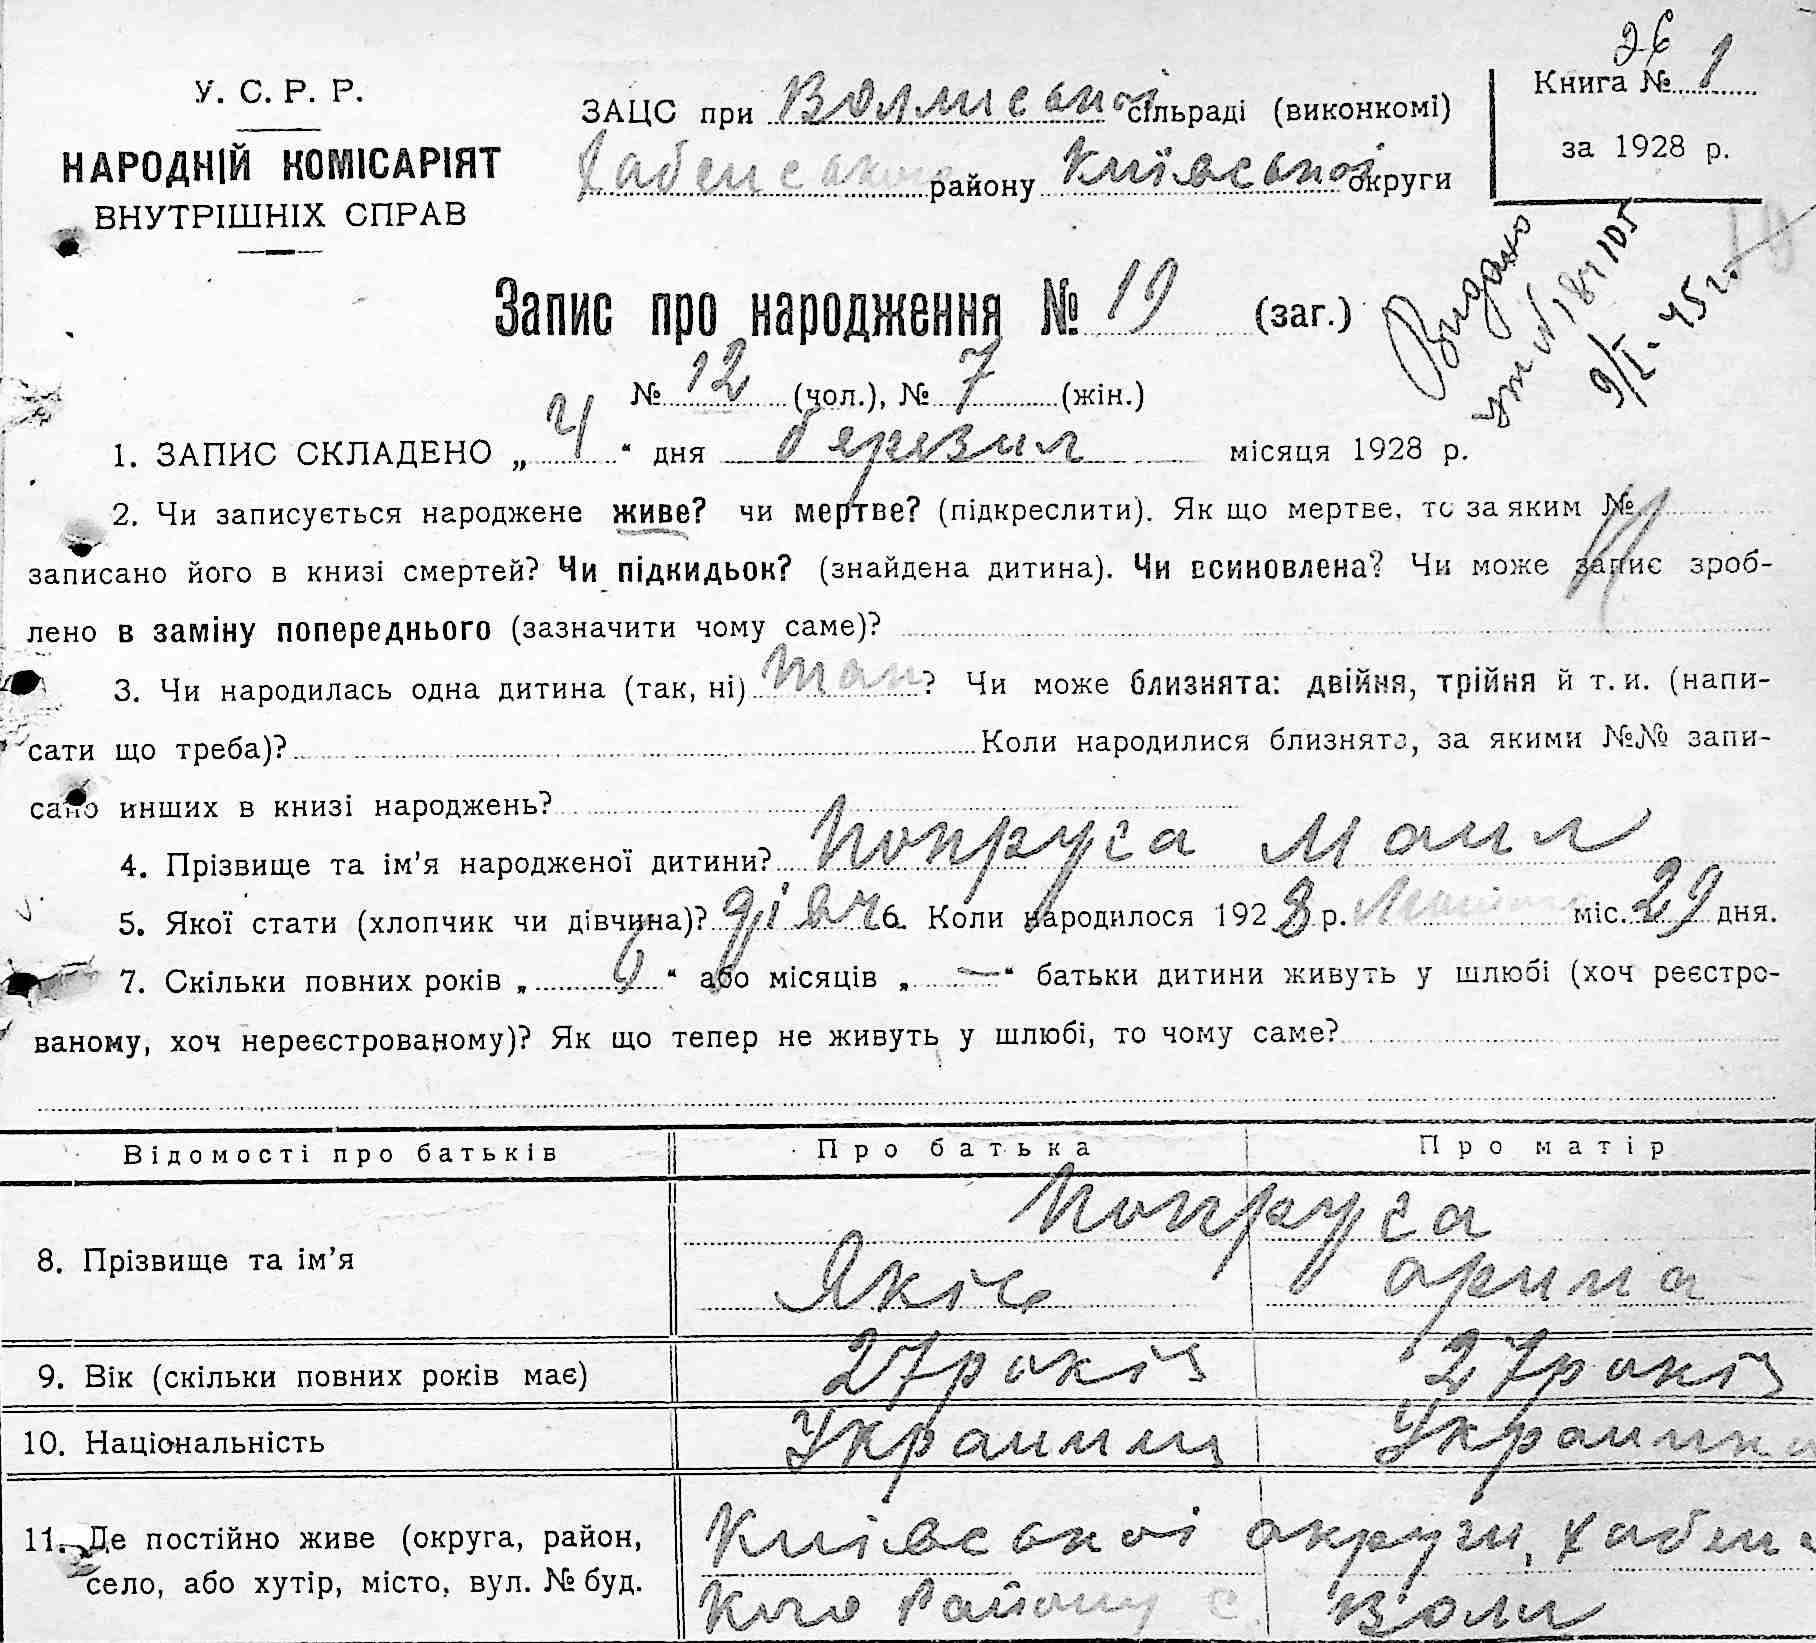 26
Книга № 1
за 1928 р.
У. С. Р. Р.
НАРОДНІЙ КОМІСАРІЯТ
ВНУТРІШНІХ СПРАВ
ЗАЦС при Волянської сільраді (виконкомі)
Хабенського району Київської округи
Видано
№ 184105
9/I-45 г.
Запис про народження № 19 (заг.)
№ 12 (чол.), № 7 (жін.)
1. ЗАПИС СКЛАДЕНО „ 4 “ дня березня місяця 1928 р.
2. Чи записується народжене живе? чи мертве? (підкреслити). Як що мертве, то за яким №
записано його в книзі смертей? Чи підкидьок? (знайдена дитина). Чи всиновлена? Чи може запис зроб-
лено в заміну попереднього (зазначити чому саме)?
3. Чи народилась одна дитина (так, ні) так ? Чи може близнята: двійня, трійня й т. и. (напи-
сати що треба)? Коли народилися близнята, за якими №№ запи-
сано инших в книзі народжень?
4. Прізвище та ім’я народженої дитини? Попруга Мая
5. Якої стати (хлопчик чи дівчина)? дівч 6. Коли народилося 1928 р. міс. 29 дня.
7. Скільки повних років „ 6 “ або місяців „ — “ батьки дитини живуть у шлюбі (хоч реєстро-
ваному, хоч нереєстрованому)? Як що тепер не живуть у шлюбі, то чому саме?
Відомості про батьків Про батька Про матір
Попруга
8. Прізвище та ім’я Яків Орина
9. Вік (скільки повних років має) 27 років 27 років
10. Національність Украинец Украинка
11. Де постійно живе (округа, район, Київської округи, Хабенс
село, або хутір, місто, вул. № буд. кого Району с. Воля